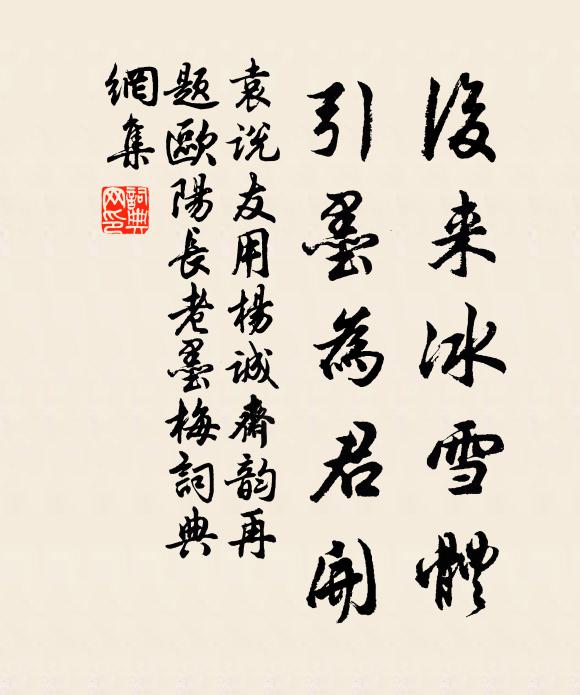 後来冰雪體
引墨為君開
袁説友用楊誠齋韵再
題歐陽長老墨梅詞典
網集
詞典
网印